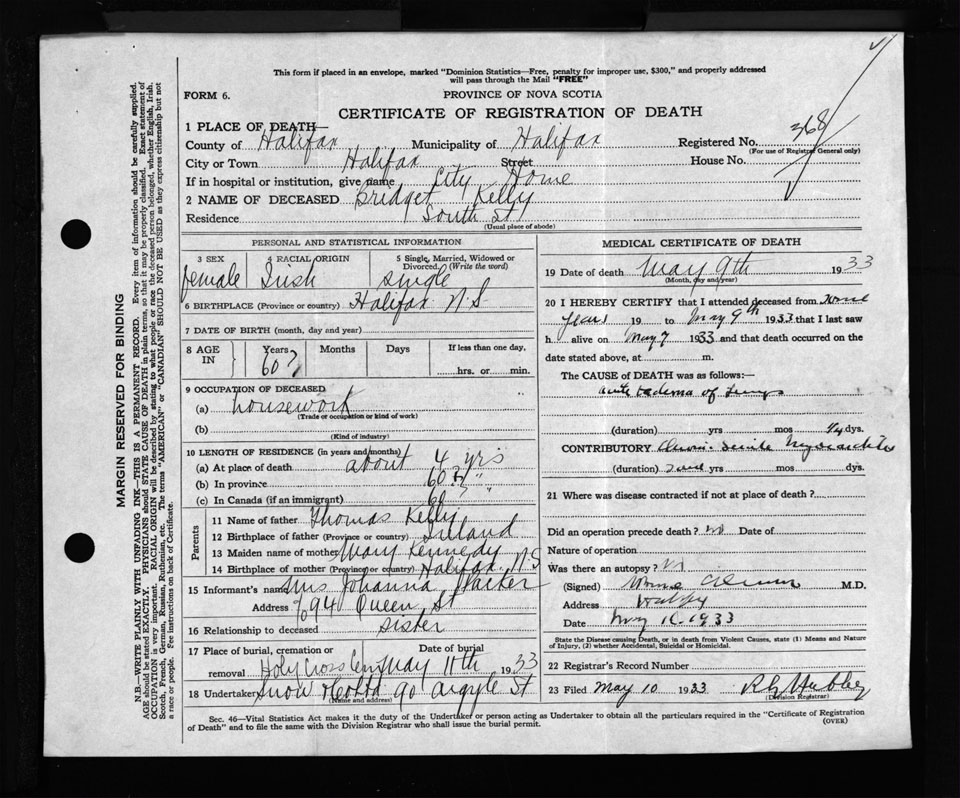 This form if placed in an envelope, marked "Dominion Statistics—Free, penalty for improper use, $300," and properly addressed
will pass through the Mail "FREE"
FORM 6.
PROVINCE OF NOVA SCOTIA
CERTIFICATE OF REGISTRATION OF DEATH
1 PLACE OF DEATH—
County of Halifax Municipality of Halifax Registered No. 368
(For use of Registrar General only)
City or Town Halifax Street House No.
If in hospital or institution, give name City Home
2 NAME OF DECEASED Bridget Kelly
Residence South St
(Usual place of abode)
PERSONAL AND STATISTICAL INFORMATION
3 SEX 4 RACIAL ORIGIN 5 Single, Married, Widowed or
Divorced. (Write the word)
female Irish single
6 BIRTHPLACE (Province or country) Halifax N S
7 DATE OF BIRTH (month, day and year)
8 AGE IN Years Months Days If less than one day,
60? hrs. or min.
9 OCCUPATION OF DECEASED
(a) housework
(Trade or occupation or kind of work)
(b)
(Kind of industry)
10 LENGTH OF RESIDENCE (in years and months)
(a) At place of death about 4 yrs
(b) In province 60? "
(c) In Canada (if an immigrant) "
Parents
11 Name of father Thomas Kelly
12 Birthplace of father (Province or country) Ireland
13 Maiden name of mother Mary Kennedy
14 Birthplace of mother (Province or country) Halifax. N S
15 Informant's name Mrs Johanna Parker
Address 94 Queen St
16 Relationship to deceased sister
17 Place of burial, cremation or Date of burial
removal Holy Cross Cem May 11th 1933
18 Undertaker Snow & Co Ltd 90 Argyle St
(Name and address)
MEDICAL CERTIFICATE OF DEATH
19 Date of death May 9th 1933
(Month, day and year)
20 I HEREBY CERTIFY that I attended deceased from
years 19 to May 9th 1933 that I last saw
h alive on May 9 1933 and that death occurred on the
date stated above, at m.
The CAUSE of DEATH was as follows:—
acute oedema of lungs
(duration) yrs mos dys.
CONTRIBUTORY Chronic Senile Myocarditis
(duration) yrs mos. dys.
21 Where was disease contracted if not at place of death?
Did an operation precede death? no Date of
Nature of operation
Was there an autopsy? no
(Signed) M.D.
Address Halifax
Date May 10, 1933
State the Disease causing Death, or in death from Violent Causes, state (1) Means and Nature
of Injury, (2) whether Accidental, Suicidal or Homicidal.
22 Registrar's Record Number
23 Filed May 10 1933
(Division Registrar)
Sec. 46—Vital Statistics Act makes it the duty of the Undertaker or person acting as Undertaker to obtain all the particulars required in the "Certificate of Registration
of Death" and to file the same with the Division Registrar who shall issue the burial permit.
(OVER)
MARGIN RESERVED FOR BINDING
N.B.—WRITE PLAINLY WITH UNFADING INK—THIS IS A PERMANENT RECORD. Every item of information should be carefully supplied.
AGE should be stated EXACTLY. PHYSICIANS should STATE CAUSE OF DEATH in plain terms, so that it may be properly classified. Exact statement of
OCCUPATION is very important. RACIAL ORIGIN will be described by stating to what people or race the deceased person belonged, whether English, Irish,
Scotch, French, German, Russian, Ruthenian, etc. The terms "AMERICAN" or "CANADIAN" SHOULD NOT BE USED as they express citizenship but not
a race or people. See instructions on back of Certificate.